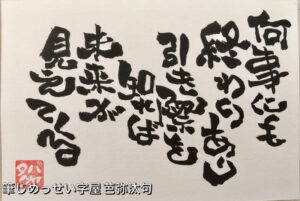 何事にも
終わりあり
引き際を
知れば
未来が
見えてくる
筆じめっせい字屋 芭弥汰句